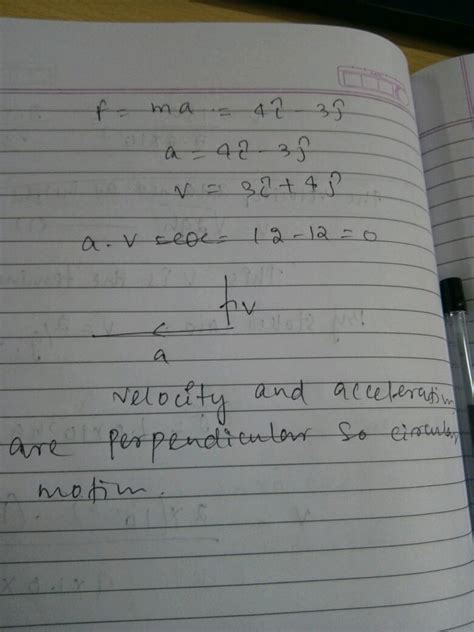 F = ma = 4î - 3ĵ
a = 4î - 3ĵ
v = 3î + 4ĵ
a . v = = 12 - 12 = 0
v
a
velocity and acceleration
are perpendicular so circular
motion.